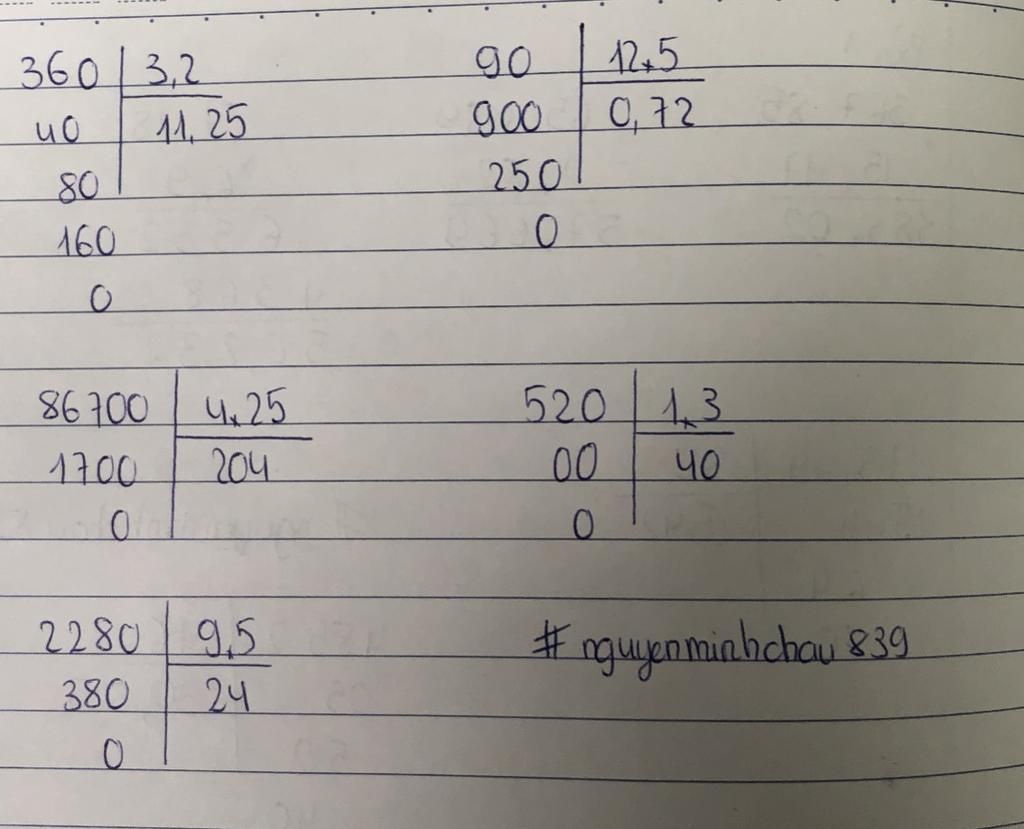 360 3,2 90 12,5
40 11,25 900 0,72
80 250
160 0
0
86700 4,25 520 1,3
1700 204 00 40
0 0
2280 9,5 # nguyenminhchau 839
380 24
0